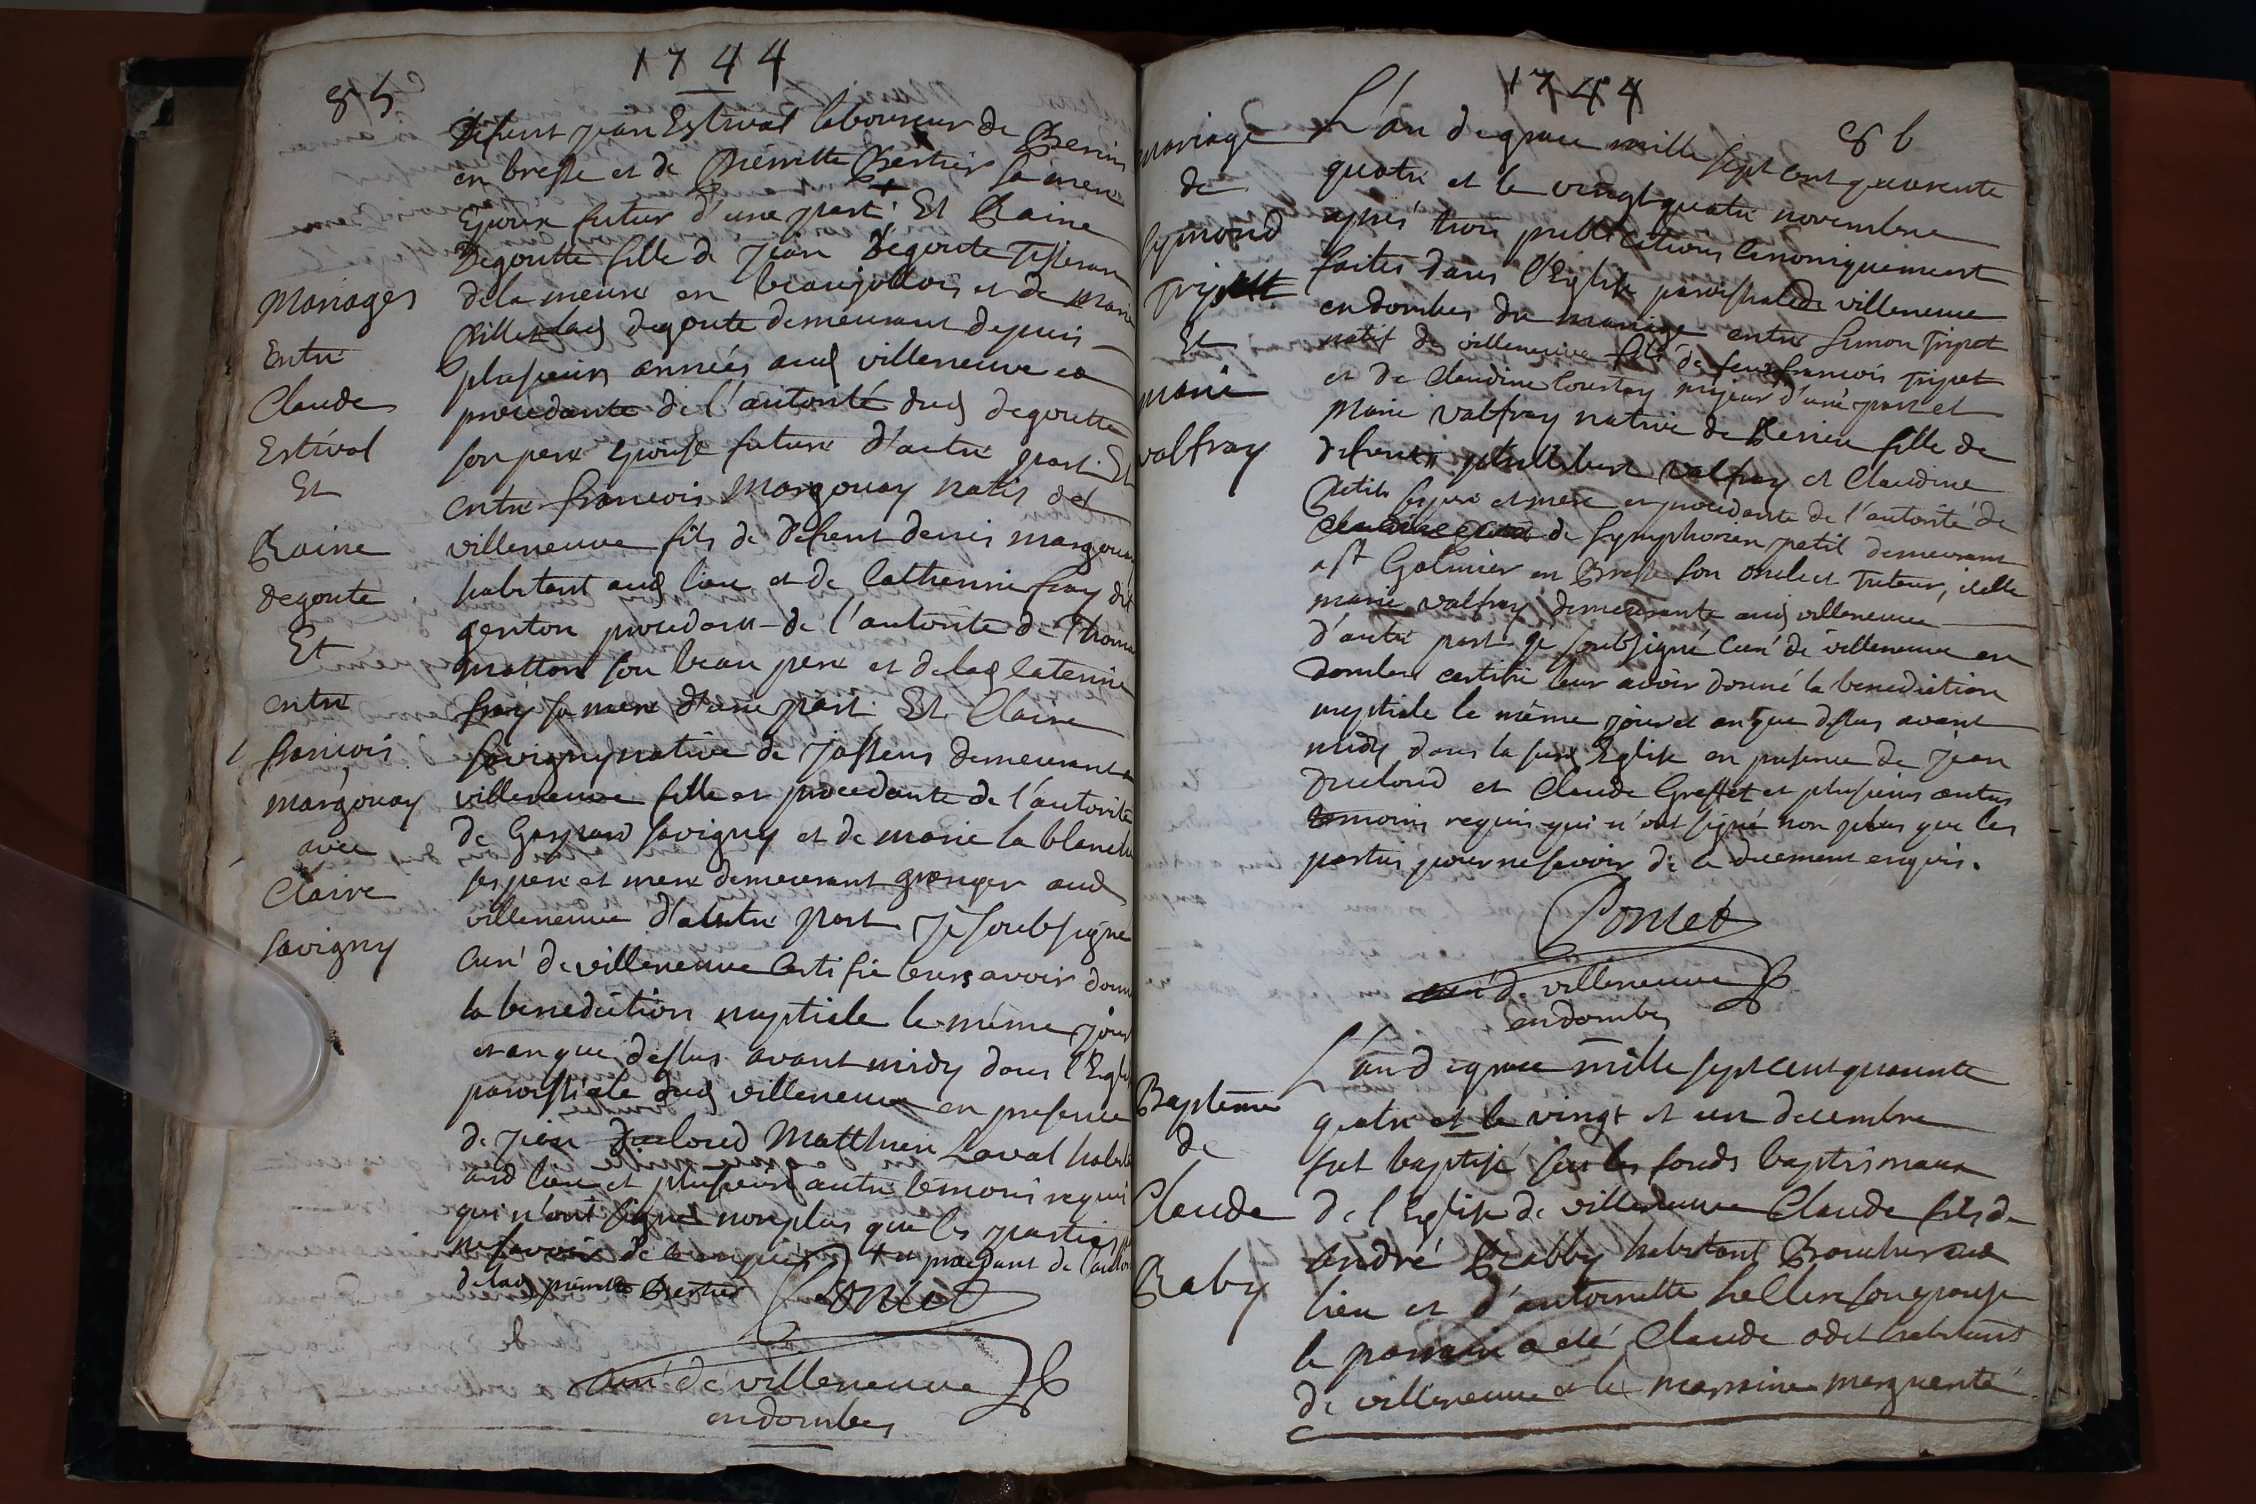 1744
85
Mariages
Entre
Claude
Estival
Et
Raine
degoute
Et
entre
francois
margouay
avec
Claire
Savigny
defunt jean Estival laboureur de
en bresse et de Pierrette Bertier sa mere
Epoux futur d'une part. Et Raine
degoutte fille de jean degoute Tisseran
de la meure en beaujollois et de marie
degoute demeurant depuis
plusieurs années aud villeneuve et
procedante de l'autorité dud degoutte
son pere Epouse future d'autre part. Et
entre francois Margouay natif de
villeneuve fils de defunt denis margouay
habitant aud lieu et de Catherine fray dit
genton procedant de l'autorité de Thoma
matton son beau pere et de lad Caterine
fray sa mere d'une part. Et Claire
savigny native de jassens demeurant a
villeneuve fille et procedante de l'autorité
de Gaspard savigny et de marie la blanche
ses pere et mere demeurant granger aud
villeneuve d'autre part je soubsigné
curé de villeneuve Certifie leurs avoir donné
la benediction nuptiale le même jour
et an que dessus avant midy dans l'Eglise
paroissiale dud villeneuve en presence
de jean ducloud Matthieu Laval
aud lieu et plusieurs autre temoins requis
qui n'ont signé non plus que les parties
ne savoir de ce enquis + et procedant de l'autorité
de lad pierrette Bertier Poncet
curé de villeneuve
en dombes
1744
86
mariage
de
Symond
Tripot
Et
marie
valfray
L'an de grace mille sept cent quarente
quatre et le vingt quatre novembre
après trois publications Canoniquement
faites dans l'Eglise paroissialede villeneuve
en dombes du mariage entre Simon Tripot
natif de villeneuve fils de feu francois Tripot
et de Claudine majeur d'une part et
Marie valfray native de fille de
defunts phillibert valfray et Claudine
petit ses pere et mere et procedante de l'autorité de
de Symphorien petit demeurant
a st Galmier en son oncle et Tuteur, icelle
marie valfray demeurante aud villeneuve
d'autre part. je soubsigné Curé de villeneuve en
dombes certifie leur avoir donné la benediction
nuptiale le même jour et an que dessus avant
midy dans la sud Eglise en presence de jean
Ducloud et Claude Greffet et plusieurs autres
temoins requis qui n'ont signé non plus que les
parties pour ne savoir de ce duement enquis.
Poncet
curé de villeneuve
en dombes
Bapteme
de
Claude
Raby
L'an de grace mille sept cent quarente
quatre et le vingt et un decembre
fut baptisé sur les fonds baptismaux
de l'Eglise de villeneuve Claude fils de
andré Rabby habitant aud
lieu et d'antoinette son epouse
le parrain a été Claude odet habitant
de villeneuve et la marraine marguerite